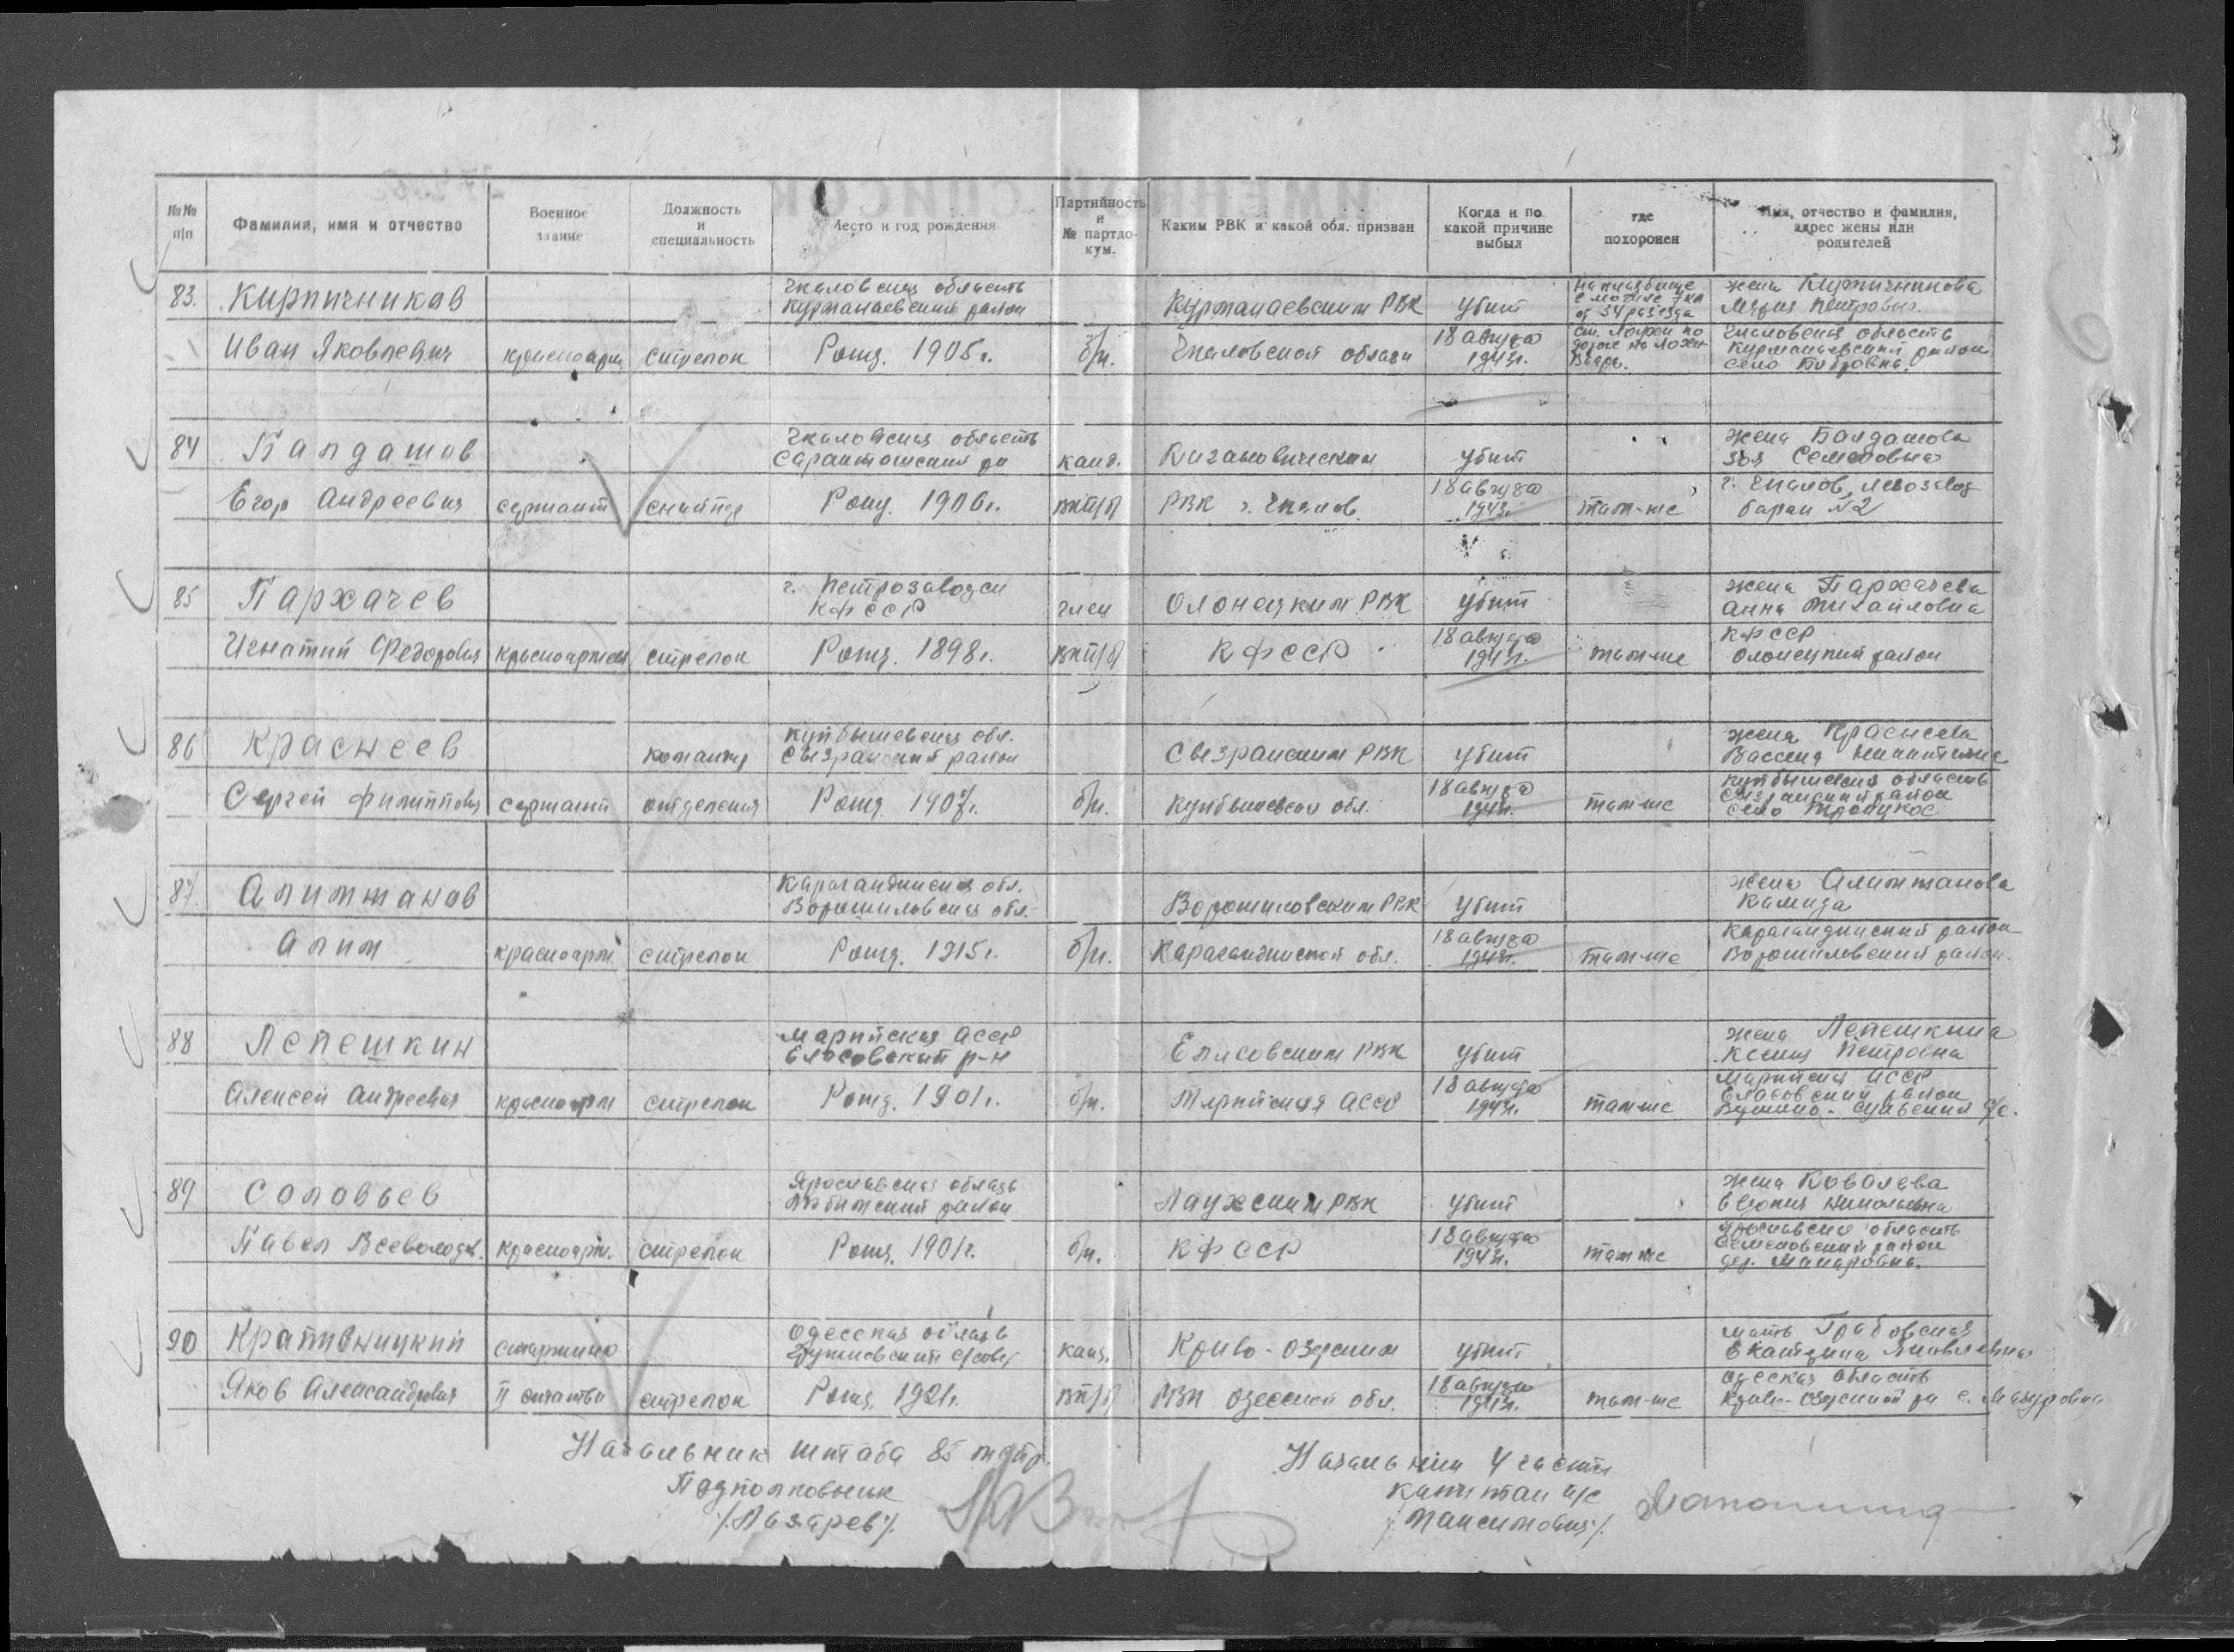 №№ п/п
Фамилия, имя и отчество
Военное звание
Должность и специальность
Место и год рождения
Партийность и № партдокум.
Каким РВК и какой обл. призван
Когда и по какой причине выбыл
где похоронен
Имя, отчество и фамилия, адрес жены или родителей
83. Кирпичников
Иван Яковлевич
красноарм.
стрелок
Чкаловская область
Курманаевский район
Рожд. 1905 г.
б/п.
Курманаевским РВК
Чкаловской области
убит
18 августа
1943 г.
На кладбище
в могиле 7 км
от 34 разъезда
ст. Лоухи по
дороге на
жена Кирпичникова
Мария Петровна.
Чкаловская область
Курманаевский район
село
84
Егор Андреевич
сержант
снайпер
Чкаловская область
Рожд. 1906 г.
канд.
ВКП/б/
Кагановическим
РВК г. Чкалов
убит
18 августа
1943г.
там-же
жена
Зоя Семеновна
г. Чкалов,
барак №2
85 Пархачев
Игнатий Федорович
красноармеец
стрелок
г. Петрозаводск
КФССР
Рожд. 1898 г.
член
ВКП/б/
Олонецким РВК
КФССР
убит
18 августа
1943г.
там-же
жена Пархачева
Анна Михайловна
КФССР
Олонецкий район
86 Краснеев
Сергей Филиппович
сержант
команд.
отделения
Куйбышевская обл.
Сызранский район
Рожд. 1907 г.
б/п.
Сызранским РВК
Куйбышевской обл.
убит
18 августа
1943г.
там-же
жена Краснеева
Куйбышевская область
Сызранский район
село Троицкое
87. Алимжанов
Алим
красноарм.
стрелок
Карагандинская обл.
Ворошиловская обл.
Рожд. 1915 г.
б/п.
Ворошиловским РВК
Карагандинской обл.
убит
18 августа
1943г.
там-же
жена Алимжанова
Камида
Карагандинский район
Ворошиловский район.
88 Лепешкин
Алексей Андреевич
красноарм
стрелок
Марийская АССР
Еласовский р-н
Рожд. 1901 г.
б/п.
Еласовским РВК
Марийская АССР
убит
18 августа
1943г.
там-же
жена Лепешкина
Ксения Петровна
Марийская АССР
Еласовский район
89 Соловьев
Павел Всеволод.
красноарм.
стрелок
Ярославская область
Любимский район
Рожд. 1901г.
б/п.
Лоухским РВК
КФССР
убит
18 августа
1943г.
там же
жена Ковалева
Евгения Николаевна
Ярославская область
район
дер. Макаровка.
90
Яков Александрович
старшина
II статьи
стрелок
Одесская область
Рожд. 1921г.
канд.
ВКП/б/
Криво-Озерским
РВК Одесской обл.
убит
18 августа
1943г.
там-же
мать Грабовская
Екатерина Яковлевна
Одесская область
Криво-Озерский р-н с. Мазурово
Начальник штаба 85
Подполковник
/Лазарев/.
Начальник 4 части
капитан а/с